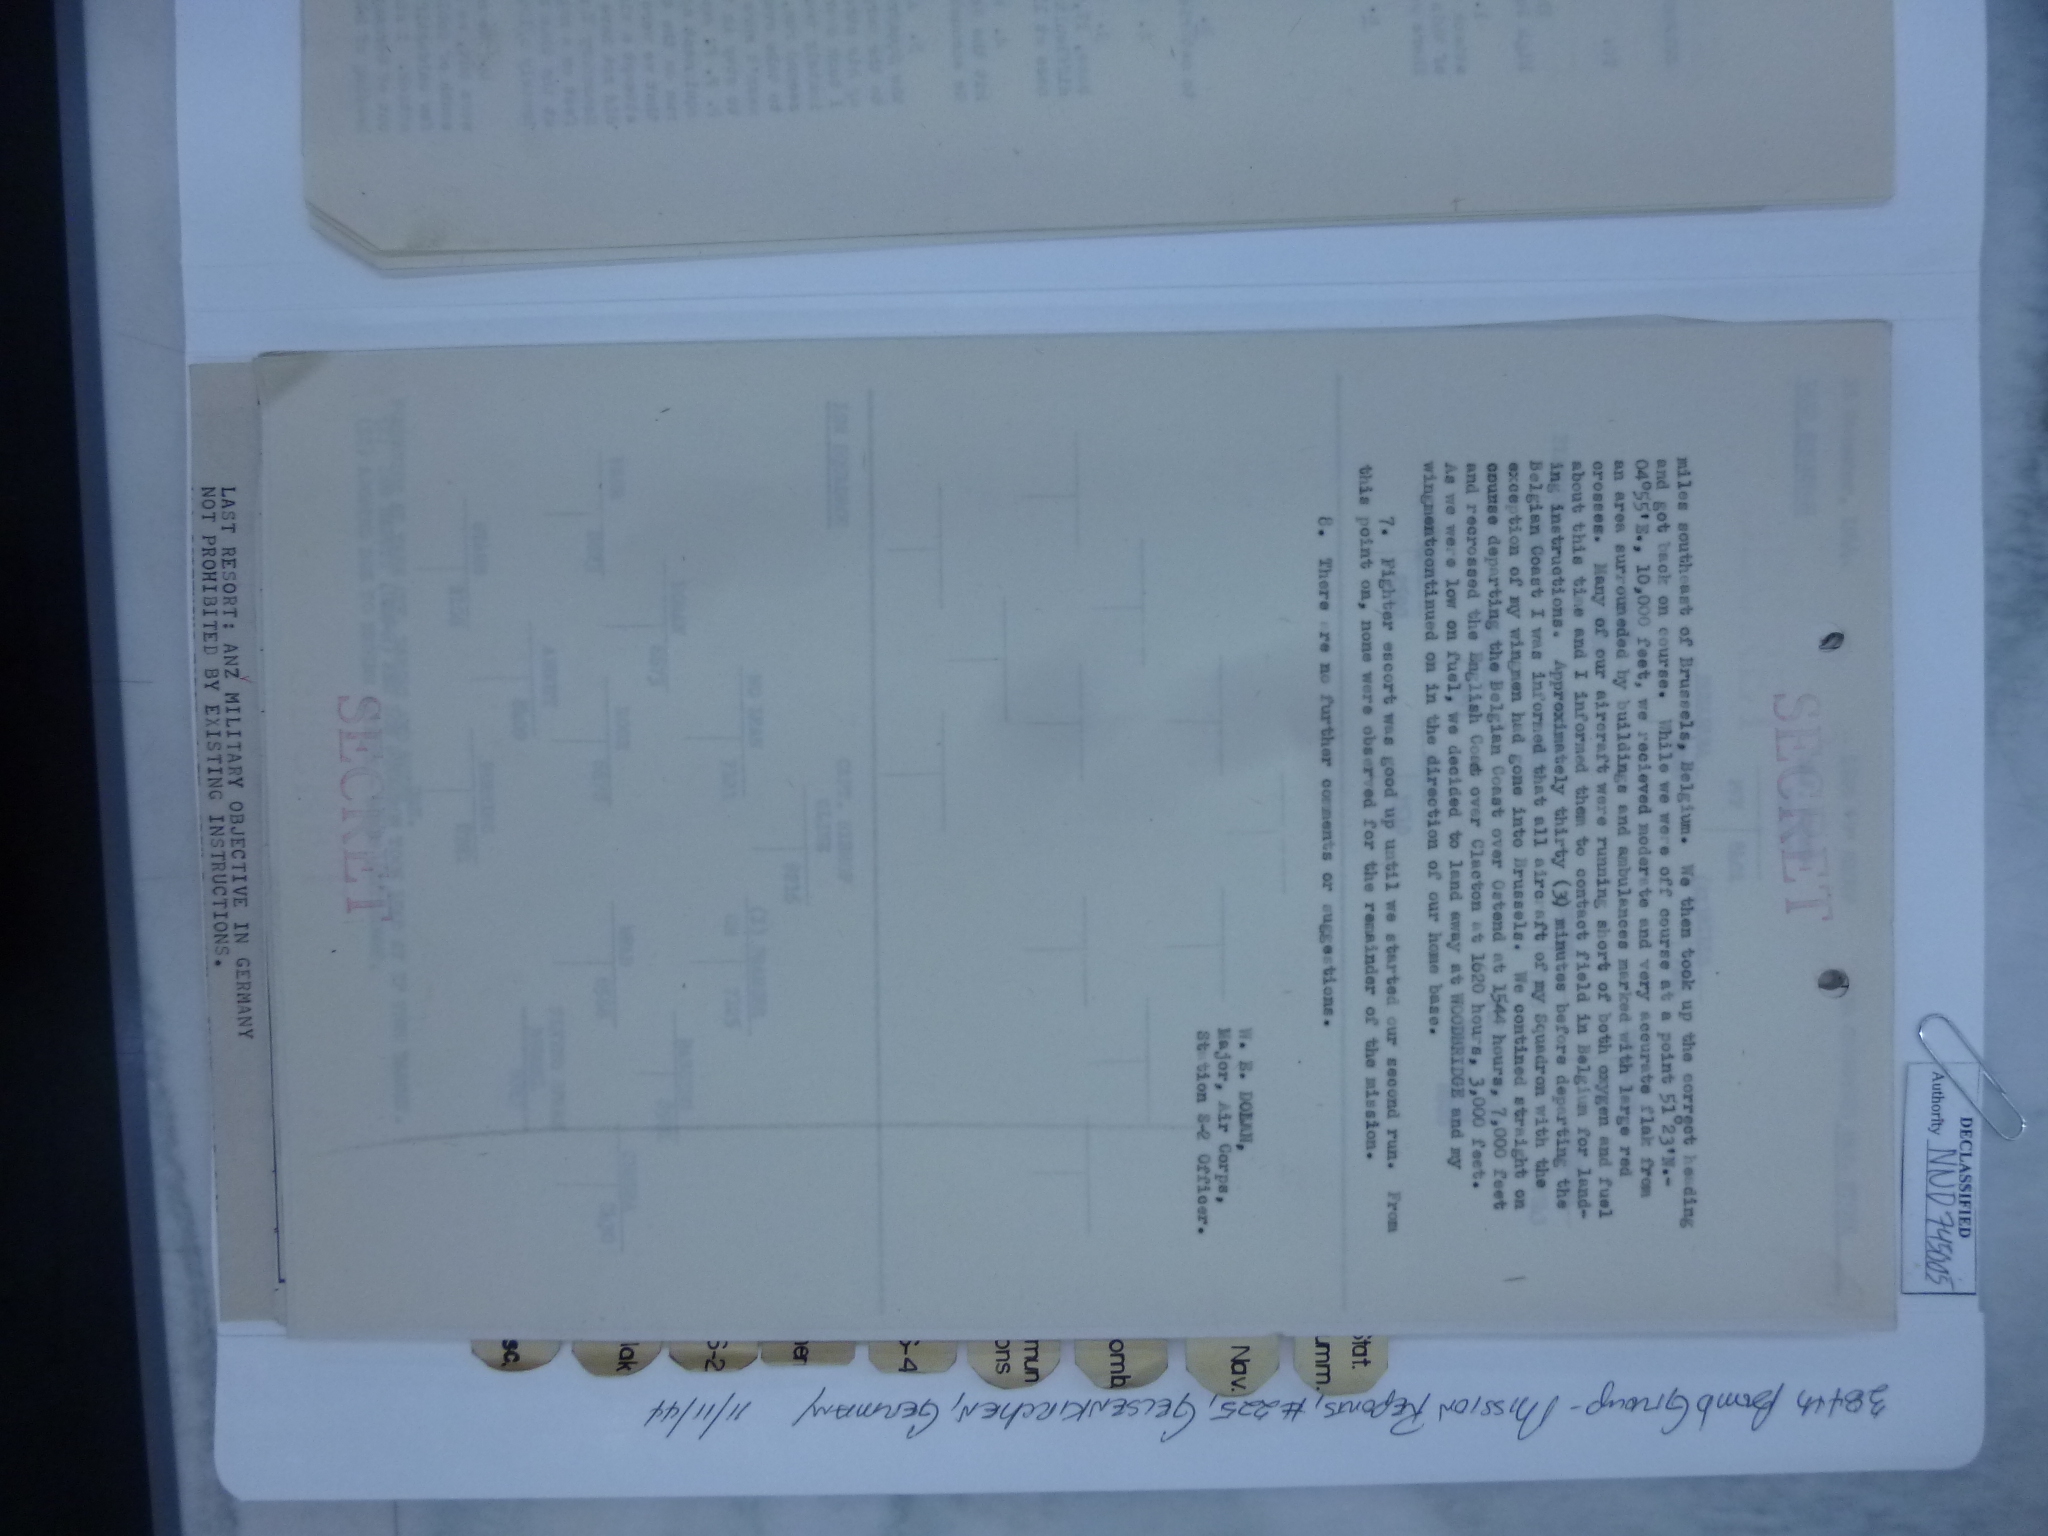 DECLASSIFIED
Authority NND 745005
SECRET
miles southeast of Brussels, Belgium. We then took up the correct heading
and got back on course. While we were off course at a point 51°23'N.-
04°55'E., 10,000 feet, we recieved moderate and very accurate flak from
an area surrounded by buildings and ambulances marked with large red
crosses. Many of our aircraft were running short of both oxygen and fuel
about this time and I informed them to contact field in Belgium for land-
ing instructions. Approximately thirty (3) minutes before departing the
Belgian Coast I was informed that all aircraft of my Squadron with the
exception of my wingmen had gone into Brussels. We contined straight on
course departing the Belgian Coast over Ostend at 1544 hours, 7,000 feet
and recrossed the English Coast over Clacton at 1620 hours, 3,000 feet.
As we were low on fuel, we decided to land away at WOODBRIDGE and my
wingmentcontinued on in the direction of our home base.
7. Fighter escort was good up until we started our second run. From
this point on, none were observed for the remainder of the mission.
8. There are no further comments or suggestions.
W. E. DOLAN,
Major, Air Corps,
Station S-2 Officer.
SECRET
LAST RESORT: ANY MILITARY OBJECTIVE IN GERMANY
NOT PROHIBITED BY EXISTING INSTRUCTIONS.
tat.
umm.
Nav.
omb
mun
ons
S-4
er
S-2
lak
sc.
384th Bomb Group - Mission Reports, #225, Gelsenkirchen, Germany 11/11/44